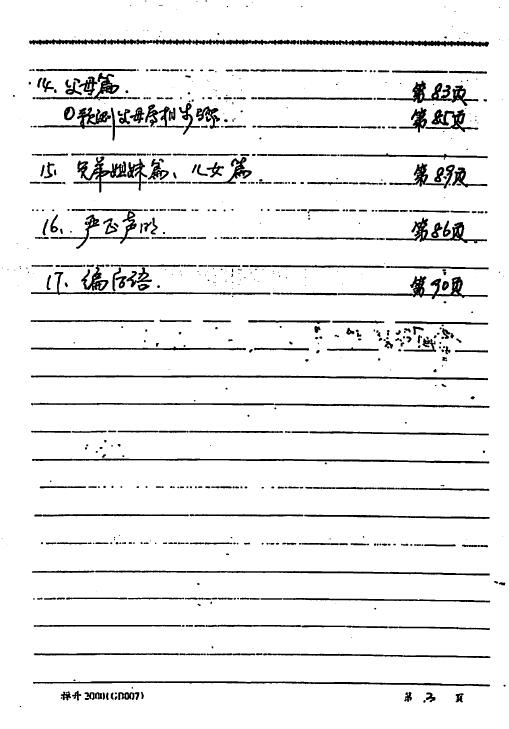 14. 父母篇. 第83页
①预测父母属相步骤. 第85页
15. 兄弟姐妹篇、儿女篇. 第89页
16. 严正声明. 第86页
17. 编后语. 第90页
2000(GD007) 第 3 页